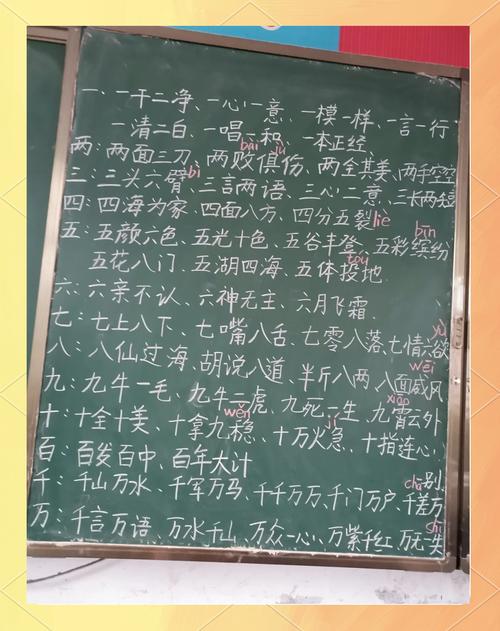 一、一干二净、一心一意、一模一样、一言一行
一清二白、一唱一和、一本正经
bài jù
两:两面三刀、两败俱伤、两全其美、两手空空
bì
三:三头六臂、三言两语、三心二意、三长两短
四:四海为家、四面八方、四分五裂liè
bīn
五:五颜六色、五光十色、五谷丰登、五彩缤纷
tóu
五花八门、五湖四海、五体投地.
六:六亲不认、六神无主、六月飞霜.
yù
七:七上八下、七嘴八舌、七零八落、七情六欲
wēi
八:八仙过海、胡说八道、半斤八两、八面威风
xiāo
九:九牛一毛、九牛二虎、九死一生、九霄云外
wěn jí
十:十全十美、十拿九稳、十万火急、十指连心、
百:百发百中、百年大计
chā别
千:千山万水、千军万马、千千万万、千门万户、千差万
shī
万:千言万语、万水千山、万众一心、万紫千红、万无一失